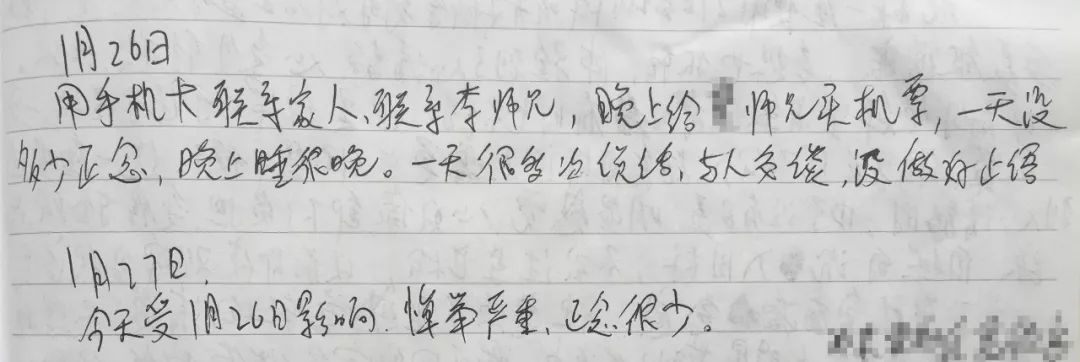 1月26日
用手机卡联系家人、联系李师兄，晚上给师兄买机票，一天没
多少正念，晚上睡很晚。一天很多次说话，与人交谈，没做好止语
1月27日.
今天受1月26日影响.掉举严重、正念很少。